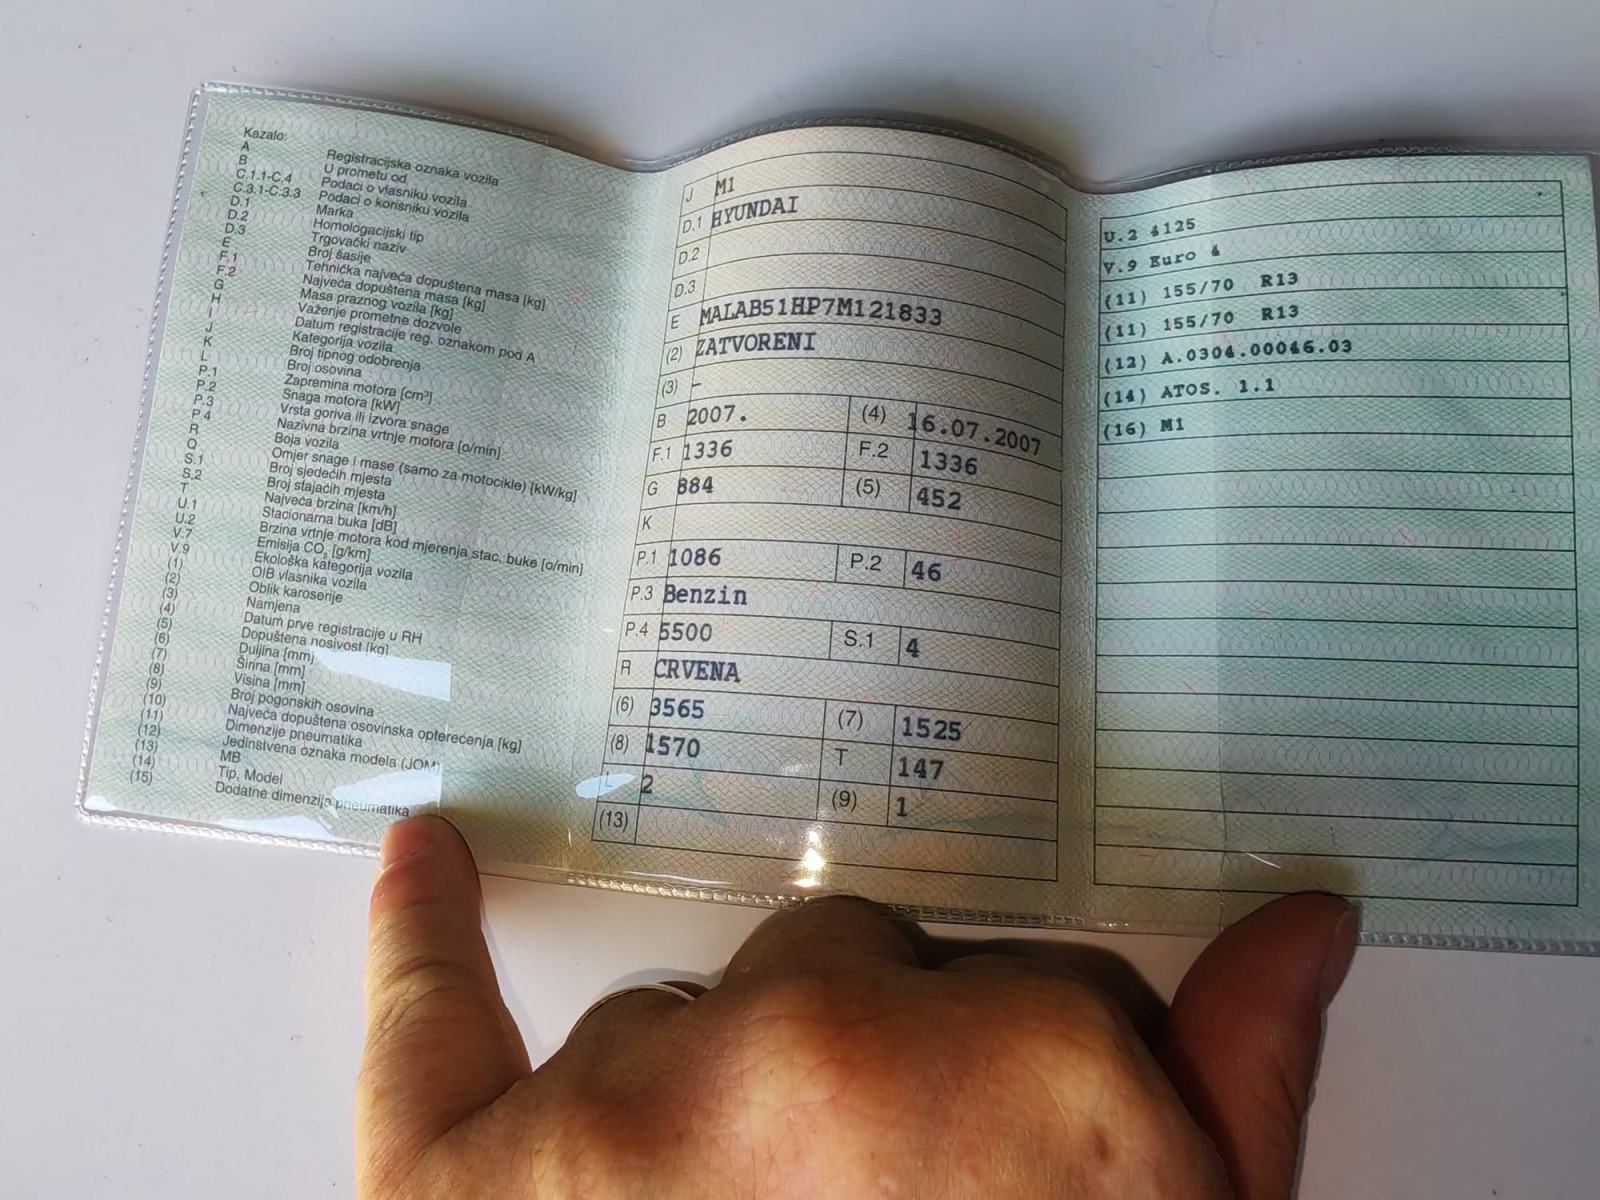 Kazalo:
A Registracijska oznaka vozila
B U prometu od
C.1.1-C.4 Podaci o vlasniku vozila
C.3.1-C.3.3 Podaci o korisniku vozila
D.1 Marka
D.2 Homologacijski tip
D.3 Trgovački naziv
E Broj šasije
F.1 Tehnička najveća dopuštena masa [kg]
F.2 Najveća dopuštena masa [kg]
G Masa praznog vozila [kg]
H Važenje prometne dozvole
I Datum registracije reg. oznakom pod A
J Kategorija vozila
K Broj tipnog odobrenja
L Broj osovina
P.1 Zapremina motora [cm³]
P.2 Snaga motora [kW]
P.3 Vrsta goriva ili izvora snage
P.4 Nazivna brzina vrtnje motora [o/min]
R Boja vozila
Q Omjer snage i mase (samo za motocikle) [kW/kg]
S.1 Broj sjedećih mjesta
S.2 Broj stajaćih mjesta
T Najveća brzina [km/h]
U.1 Stacionarna buka [dB]
U.2 Brzina vrtnje motora kod mjerenja stac. buke [o/min]
V.7 Emisija CO₂ [g/km]
V.9 Ekološka kategorija vozila
(1) OIB vlasnika vozila
(2) Oblik karoserije
(3) Namjena
(4) Datum prve registracije u RH
(5) Dopuštena nosivost [kg]
(6) Duljina [mm]
(7) Širina [mm]
(8) Visina [mm]
(9) Broj pogonskih osovina
(10) Najveća dopuštena osovinska opterećenja [kg]
(11) Dimenzije pneumatika
(12) Jedinstvena oznaka modela (JOM)
(13) MB
(14) Tip, Model
(15) Dodatne dimenzije pneumatika
J M1
D.1 HYUNDAI
D.2
D.3
E MALAB51HP7M121833
(2) ZATVORENI
(3) -
B 2007. (4) 16.07.2007
F.1 1336 F.2 1336
G 884 (5) 452
K
P.1 1086 P.2 46
P.3 Benzin
P.4 5500 S.1 4
R CRVENA
(6) 3565 (7) 1525
(8) 1570 T 147
L 2 (9) 1
(13)
U.2 4125
V.9 Euro 4
(11) 155/70 R13
(11) 155/70 R13
(12) A.0304.00046.03
(14) ATOS. 1.1
(16) M1